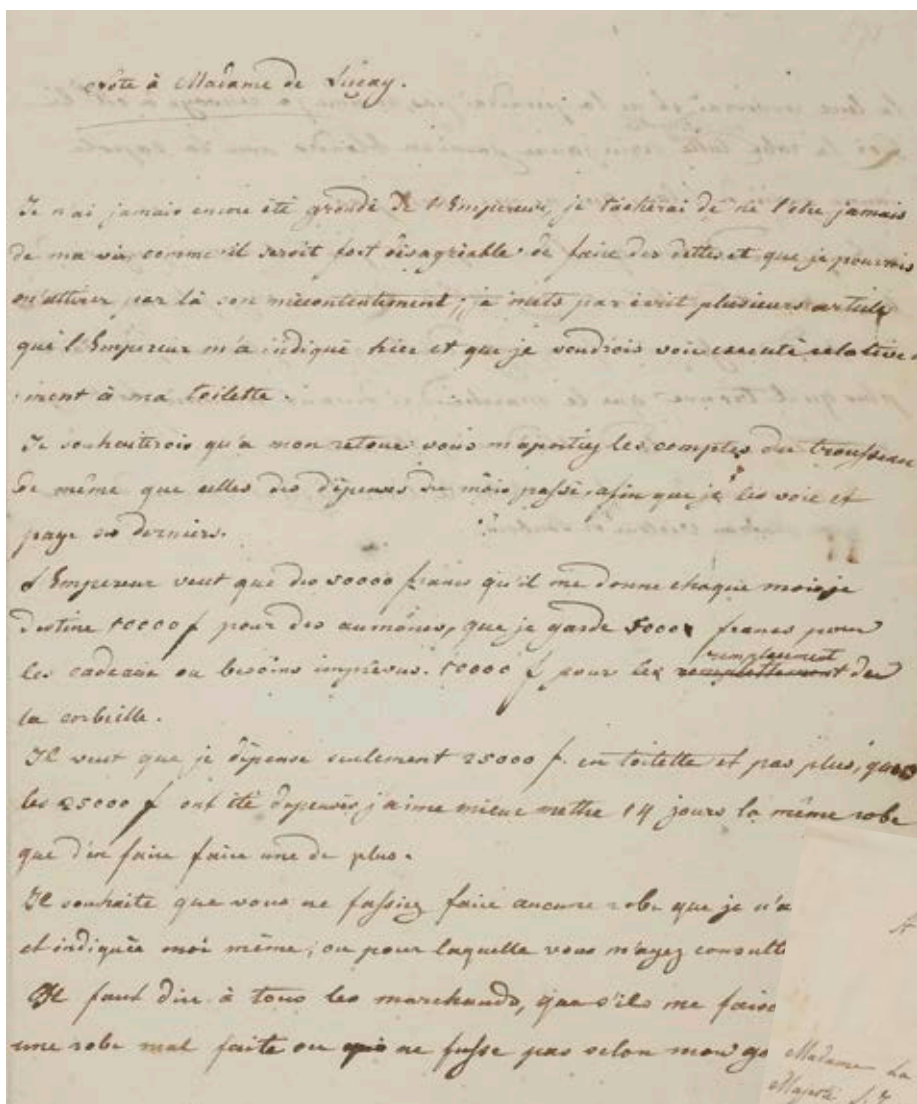 Note à Madame de Luçay.
Je n'ai jamais encore été grondé de l'Empereur, je tacherai de ne l'etre jamais
de ma vie, comme il seroit fort désagréable de faire des dettes et que je pourrois
m'attirer par là son mécontentement; je mets par écrit plusieurs article
que l'Empereur m'a indiqué hier et que je voudrois voir executé relative-
ment à ma toilette.
Je souhaiterois qu'a mon retour vous m'aportiez les comptes du trousseau
de même que celles des dépenses du mois passé, afin que je les voie et
paye ces derniers.
L'Empereur veut que des 50000 francs qu'il me donne chaque mois je
destine 10000 f pour des aumônes, que je garde 5000 francs pour
les cadeaux ou besoins imprévus. 10000 f pour les remplacement de
la corbeille.
Il veut que je dépense seulement 25000 f. en toilette et pas plus, quand
les 25000 f ont été depensés j'aime mieux mettre 14 jours la même robe
que d'en faire faire une de plus.
Il souhaite que vous ne fassiez faire aucune robe que je n'a
et indiquée moi même, ou pour laquelle vous n'ayez consulté
Il faut dire à tous les marchands, que s'ils me faiso
une robe mal faite ou qui ne fusse pas selon mon go
A
Madame La
Majesté S. I